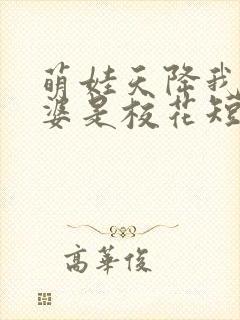 萌娃天降我
婆是校花短
高華俊